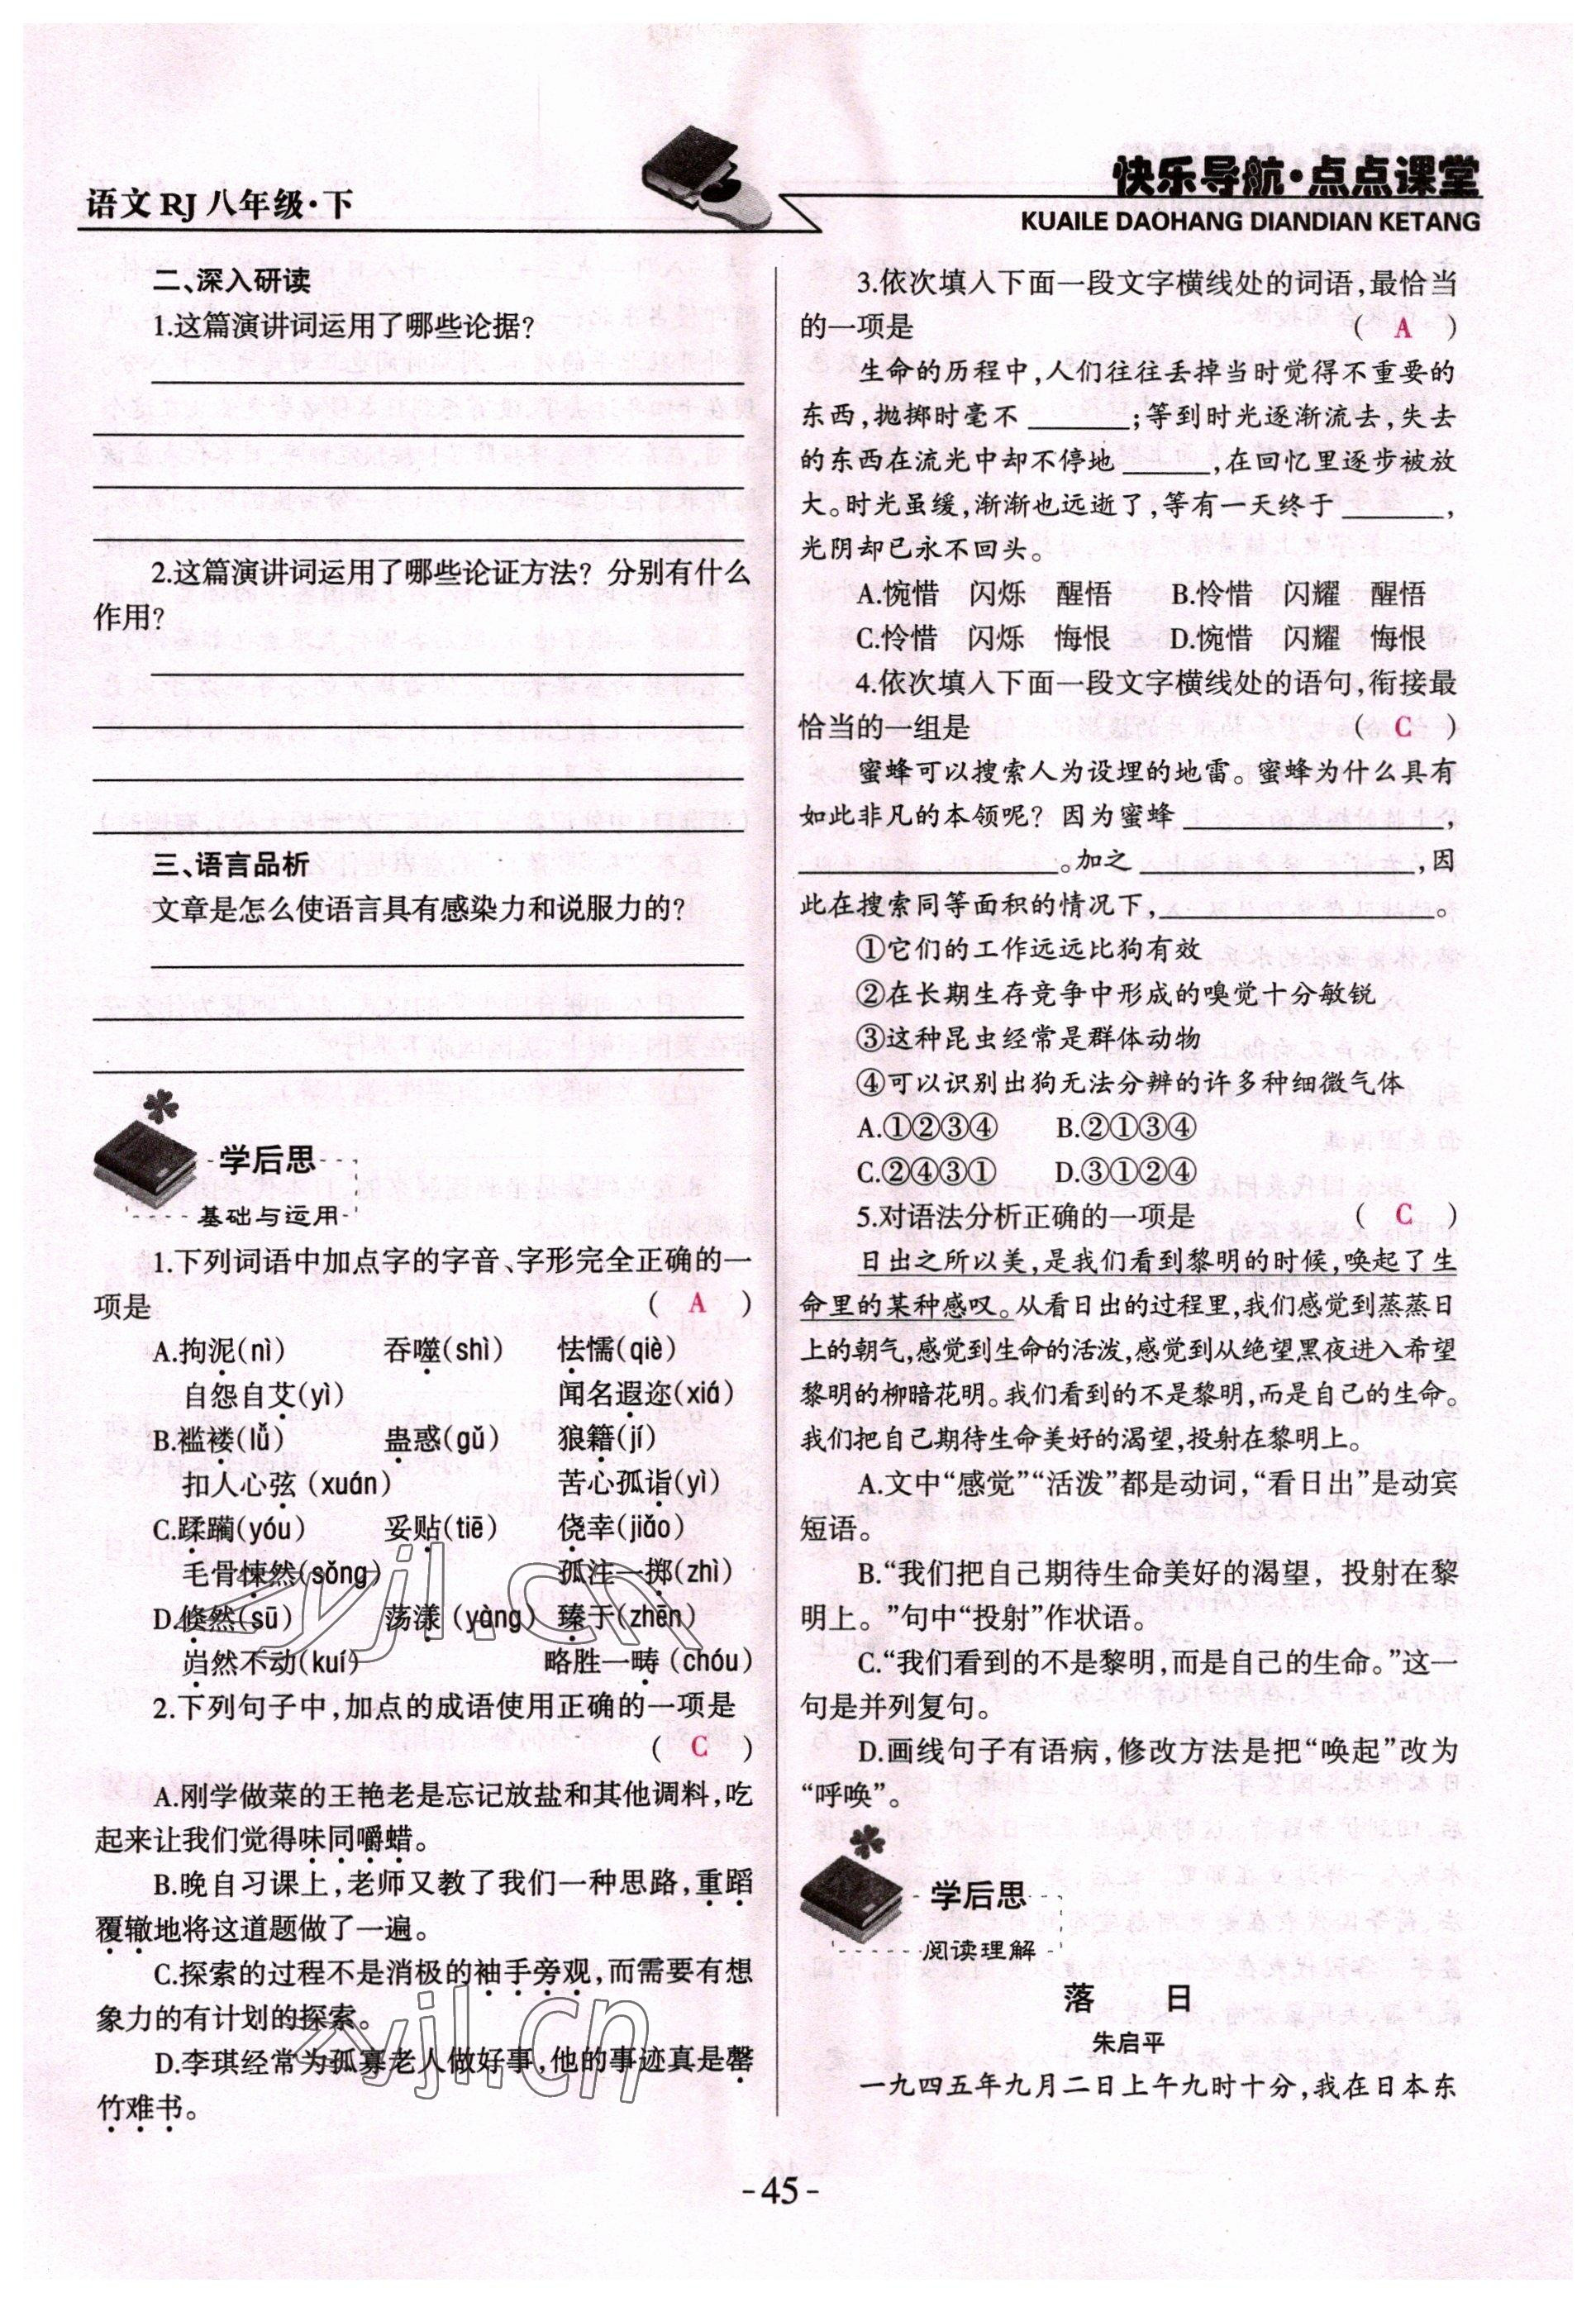 语文 RJ 八年级·下
快乐导航·点点课堂
KUAILE DAOHANG DIANDIAN KETANG
二、深入研读
1.这篇演讲词运用了哪些论据?
2.这篇演讲词运用了哪些论证方法?分别有什么
作用?
三、语言品析
文章是怎么使语言具有感染力和说服力的?
学后思
基础与运用
1.下列词语中加点字的字音、字形完全正确的一
项是 ( A )
A.拘泥(nì) 吞噬(shì) 怯懦(qiè)
自怨自艾(yì) 闻名遐迩(xiá)
B.褴褛(lǚ) 蛊惑(gǔ) 狼籍(jí)
扣人心弦(xuán) 苦心孤诣(yì)
C.蹂躏(yóu) 妥贴(tiē) 侥幸(jiǎo)
毛骨悚然(sǒng) 孤注一掷(zhì)
D.倏然(sū) 荡漾(yàng) 臻于(zhēn)
岿然不动(kuí) 略胜一畴(chóu)
2.下列句子中,加点的成语使用正确的一项是
( C )
A.刚学做菜的王艳老是忘记放盐和其他调料,吃
起来让我们觉得味同嚼蜡。
B.晚自习课上,老师又教了我们一种思路,重蹈
覆辙地将这道题做了一遍。
C.探索的过程不是消极的袖手旁观,而需要有想
象力的有计划的探索。
D.李琪经常为孤寡老人做好事,他的事迹真是罄
竹难书。
3.依次填入下面一段文字横线处的词语,最恰当
的一项是 ( A )
生命的历程中,人们往往丢掉当时觉得不重要的
东西,抛掷时毫不______;等到时光逐渐流去,失去
的东西在流光中却不停地______,在回忆里逐步被放
大。时光虽缓,渐渐也远逝了,等有一天终于______,
光阴却已永不回头。
A.惋惜 闪烁 醒悟 B.怜惜 闪耀 醒悟
C.怜惜 闪烁 悔恨 D.惋惜 闪耀 悔恨
4.依次填入下面一段文字横线处的语句,衔接最
恰当的一组是 ( C )
蜜蜂可以搜索人为设埋的地雷。蜜蜂为什么具有
如此非凡的本领呢?因为蜜蜂______,
______。加之______,因
此在搜索同等面积的情况下,______。
①它们的工作远远比狗有效
②在长期生存竞争中形成的嗅觉十分敏锐
③这种昆虫经常是群体动物
④可以识别出狗无法分辨的许多种细微气体
A.①②③④ B.②①③④
C.②④③① D.③①②④
5.对语法分析正确的一项是 ( C )
日出之所以美,是我们看到黎明的时候,唤起了生
命里的某种感叹。从看日出的过程里,我们感觉到蒸蒸日
上的朝气,感觉到生命的活泼,感觉到从绝望黑夜进入希望
黎明的柳暗花明。我们看到的不是黎明,而是自己的生命。
我们把自己期待生命美好的渴望,投射在黎明上。
A.文中“感觉”“活泼”都是动词,“看日出”是动宾
短语。
B.“我们把自己期待生命美好的渴望,投射在黎
明上。”句中“投射”作状语。
C.“我们看到的不是黎明,而是自己的生命。”这一
句是并列复句。
D.画线句子有语病,修改方法是把“唤起”改为
“呼唤”。
学后思
阅读理解
落 日
朱启平
一九四五年九月二日上午九时十分,我在日本东
-45-
zyjl.cn
zyjl.cn